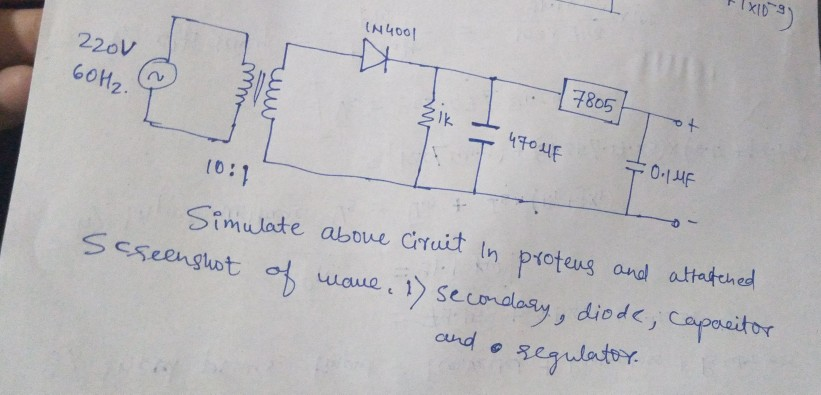 + (x10⁻⁹)
220V
60Hz.
1N4001
1k
470µF
7805
+
0.1µF
-
10:1
Simulate above Ciruit in proteus and attatched
Screenshot of wave. 1) Secondary, diode, capacitor
and regulator.